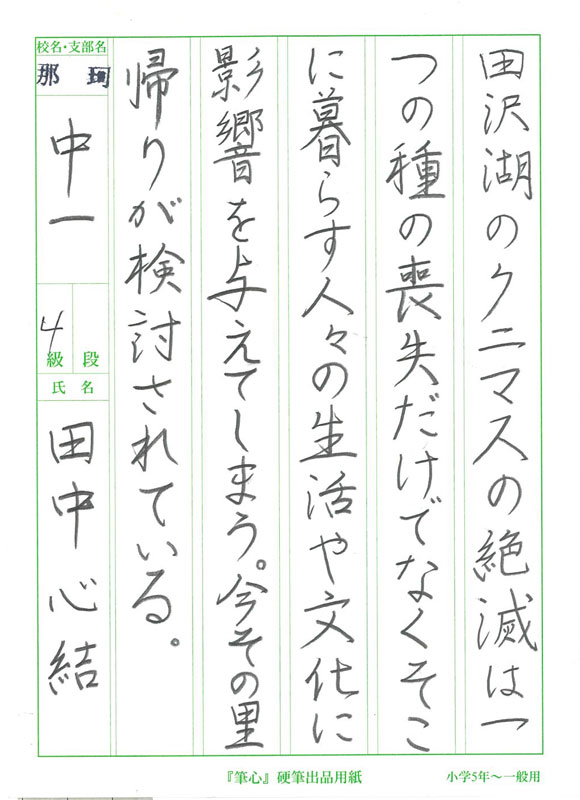 田沢湖のクニマスの絶滅は一
つの種の喪失だけでなくそこ
に暮らす人々の生活や文化に
影響を与えてしまう。今その里
帰りが検討されている。
校名・支部名
那珂
中一
4
級 段
氏名
田中心結
『筆心』硬筆出品用紙
小学5年～一般用